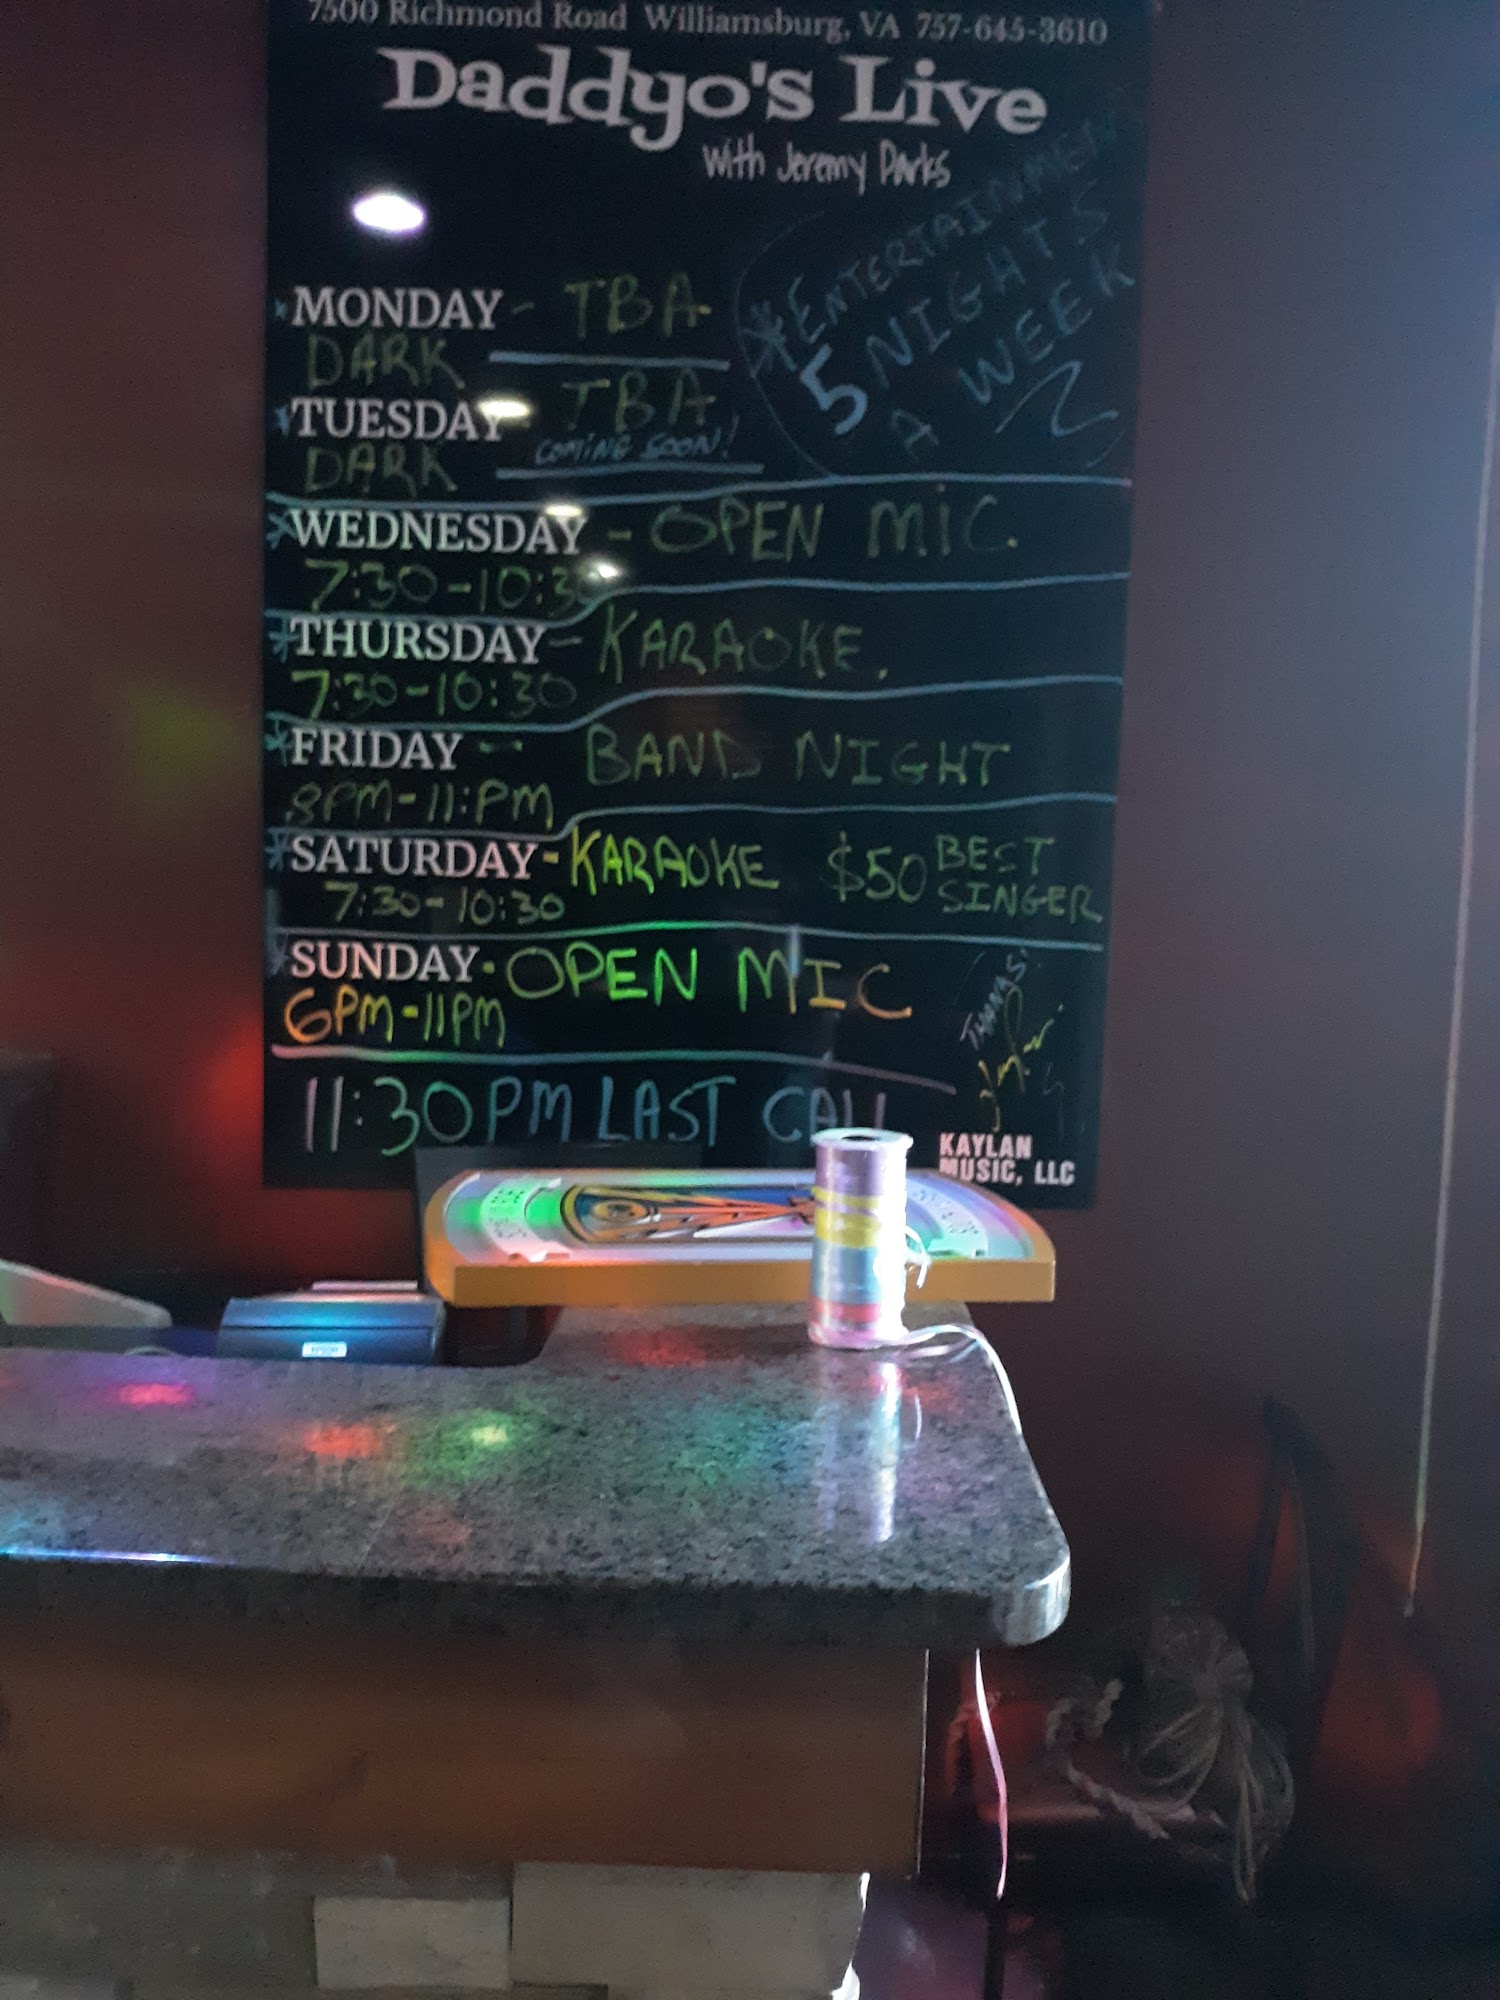 7500 Richmond Road Williamsburg, VA 757-645-3610
Daddyo's Live
with Jeremy Parks
*ENTERTAINMENT
5 NIGHTS
A WEEK
*MONDAY - TBA
DARK
*TUESDAY - TBA
COMING SOON!
DARK
*WEDNESDAY - OPEN MIC.
7:30-10:30
*THURSDAY - KARAOKE.
7:30-10:30
*FRIDAY - BAND NIGHT
8PM-11:PM
*SATURDAY - KARAOKE $50 BEST
SINGER
7:30-10:30
*SUNDAY - OPEN MIC
6PM-11PM
11:30PM LAST CALL
KAYLAN
MUSIC, LLC
EPSON